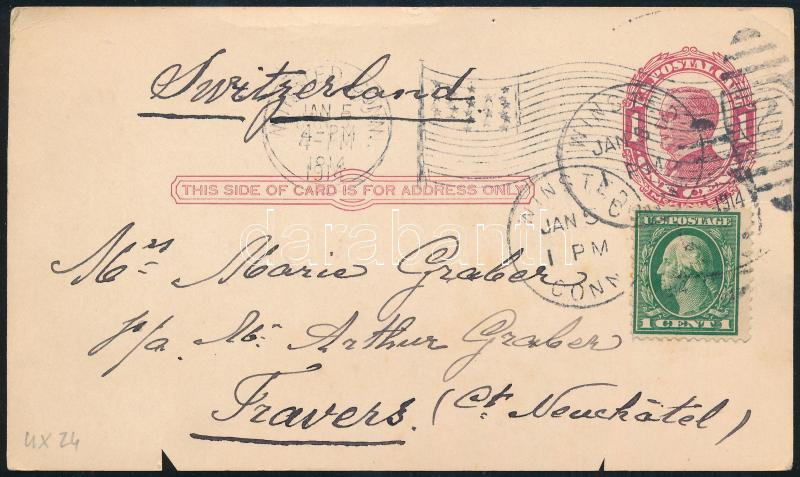 U.S. POSTAL CARD
1 CENT 1
Switzerland.
WINSTED, CONN.
JAN 5
4-PM
1914
WINSTED
JAN 5
1914
THIS SIDE OF CARD IS FOR ADDRESS ONLY
WINSTED
JAN 5
1 PM
CONN.
U.S. POSTAGE
1 CENT 1
darabanth
Mrs Marie Graber
p/a Mr. Arthur Graber
Travers. (Ct. Neuchâtel)
UX 24